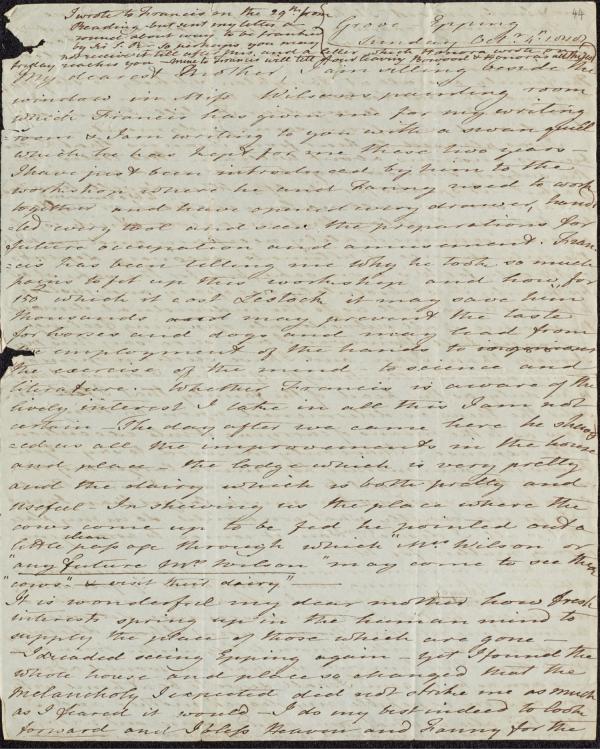 I wrote to Francis on the 29th from
and sent my letter a
about way to be franked
by Sir S. R. So perhaps you may
not receive it till after this and a letter which Honora wrote on
friday reaches you — mine to Francis will tell of our leaving Bowood & Honora's all the rest
44
Grove Epping
Sunday Octr 4th
My dearest Mother, I am sitting beside the
window in Miss Wilson's painting room
which Francis has given me for my writing
room & I am writing to you with a swan quill
which he has kept for me these two years —
I have just been introduced by him to the
workshop where he and Fanny used to work
together and have opened every drawer, hand
-led every tool and seen the preparations for
future occupation and amusement. Fran-
-cis has been telling me why he took so much
pains to fit up this workshop and how for
150 which it cost Lestock it may save him
thousands and may prevent the taste
for horses and dogs and may lead from
the employment of the hands to
the exercise of the mind to science and
literature. Whether Francis is aware of the
lively interest I take in all this I am not
certain — The day after we came here he shew
-ed us all the improvements in the house
and place — the lodge which is very pretty
and the dairy which is both pretty and
useful — In shewing us the place where the
cows come up to be fed he pointed out a
little clean passage through which "Mrs Wilson or
"any future Mrs Wilson may come to see the
"cows" & visit their dairy" —
It is wonderful my dear mother how fresh
interests spring up in the human mind to
supply the place of those which are gone —
I dreaded seeing Epping again — yet I found the
whole house and place so changed that the
melancholy I expected did not strike me as much
as I feared it would I do my best indeed to look
forward and I bless Heaven and Fanny for the